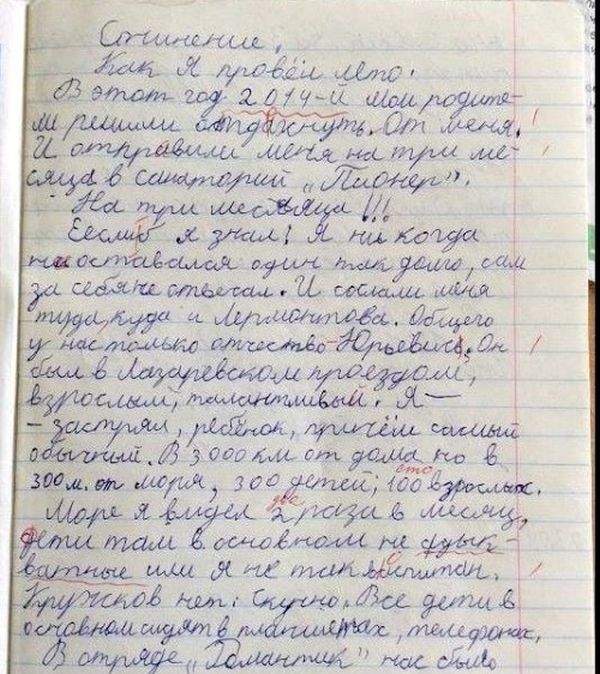 Сочинение.
Как я провёл лето.
В этот год 2014-й мои родите-
ли решили отдахнуть. От меня.
И отправили меня на три ме-
сяца в санаторий „Пионер".
На три месяца!!!
Еесли б я знал! Я ни когда
не оставался один так долго, сам
за себя не отвечал. И сослали меня
туда, куда и Лермонтова. Общего
у нас только отчество - Юрьевич. Он
был в Лазаревском проездом,
взрослый, талантливый. Я -
- застрял, ребёнок, причём самый
обычный. В 3000 км от дома но в
сто
300 м. от моря, 300 детей, 100 взрослых.
две
Море я видел 2 раза в месяц,
дети там в основном не адык-
ватные или я не так воспитан.
Кружков нет. Скучно. Все дети в
основном сидят в планшетах, телефонах.
В отряде „Романтик" нас было